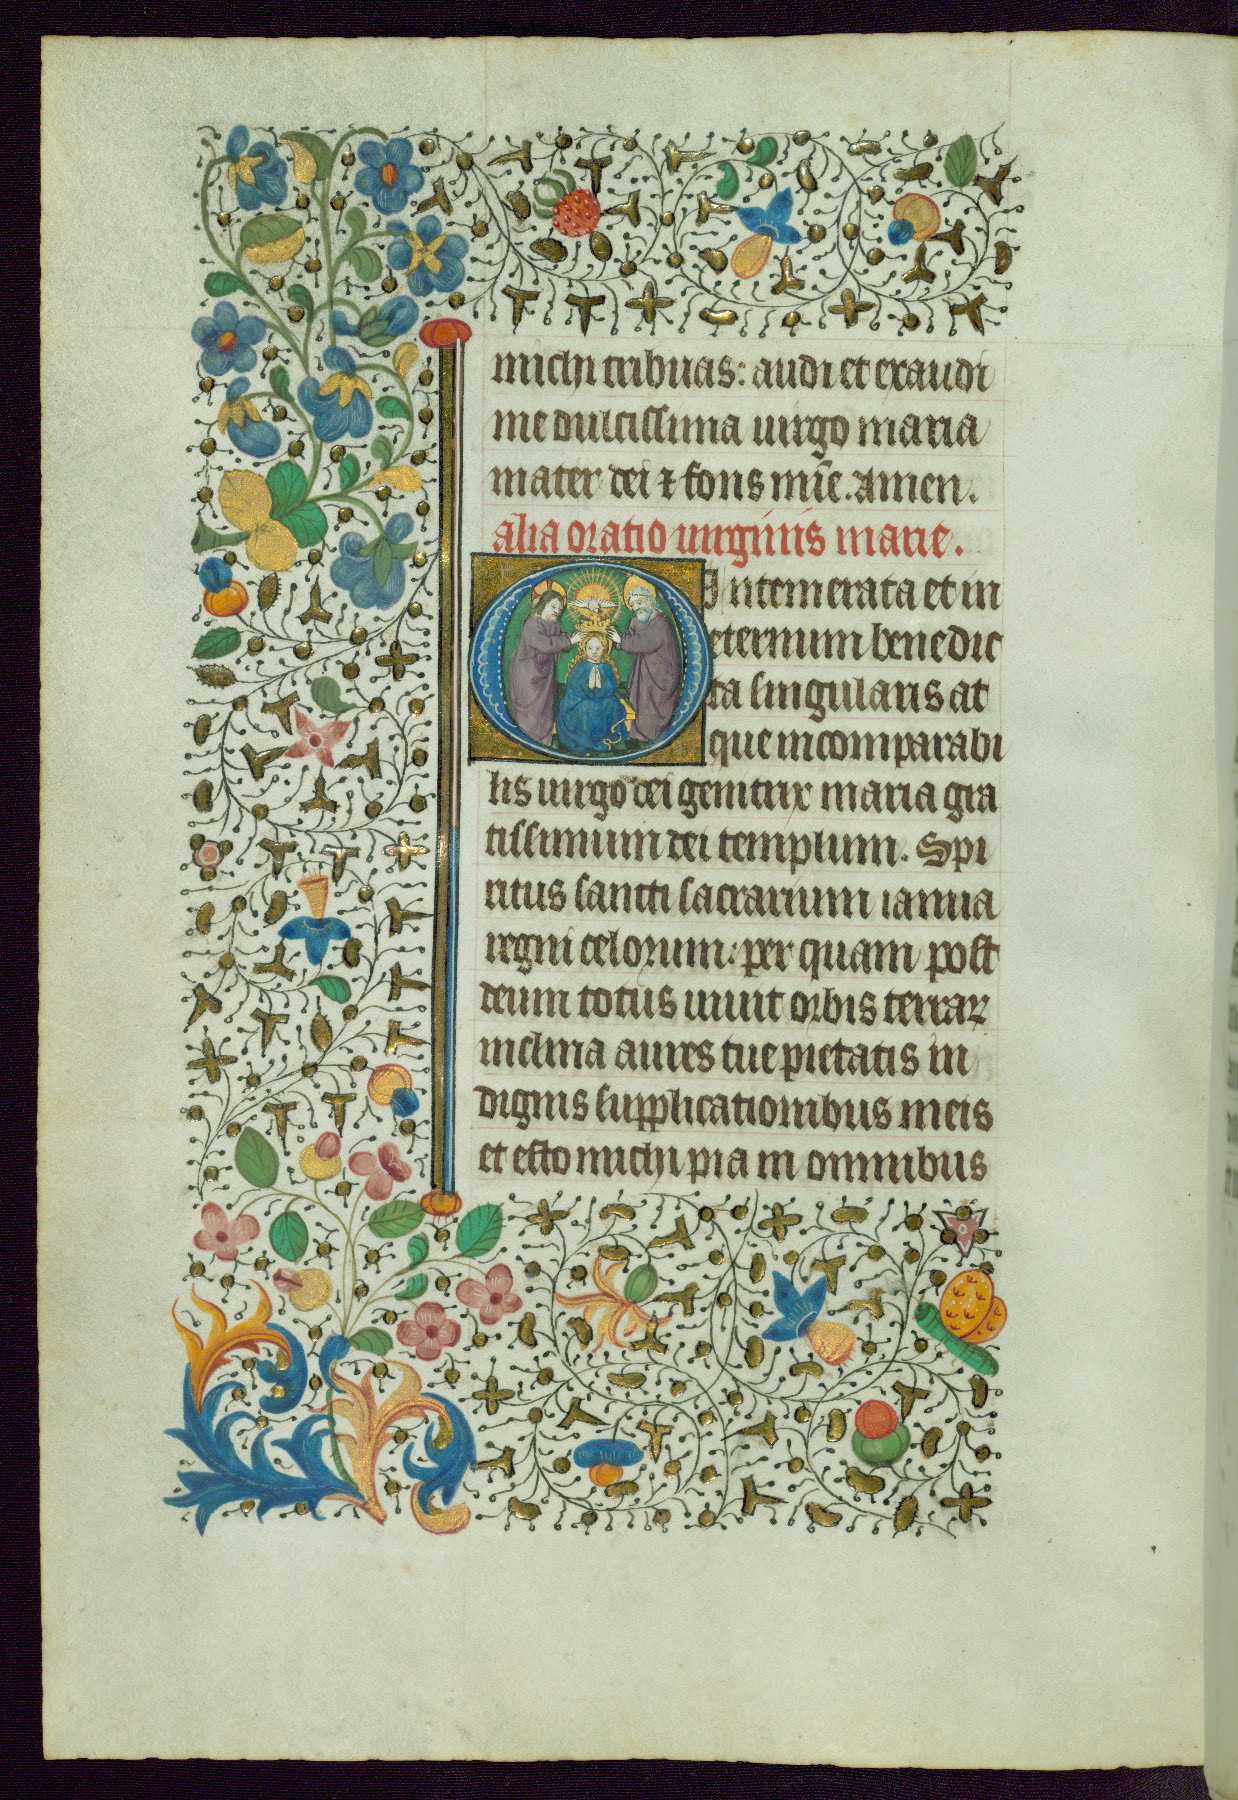 michi tribuas: audi et exaudi
me dulcissima uirgo maria
mater dei ⁊ fons mie. Amen.
alia oratio uirginis marie.
O Intemerata et in
eternum benedic
ta singularis at
que incomparabi
lis uirgo dei genitrix maria gra
tissimum dei templum. Spi
ritus sancti sacrarium ianua
regni celorum: per quam post
deum totus uiuit orbis terraꝝ
inclina aures tue pietatis in
dignis supplicationibus meis
et esto michi pia in omnibus